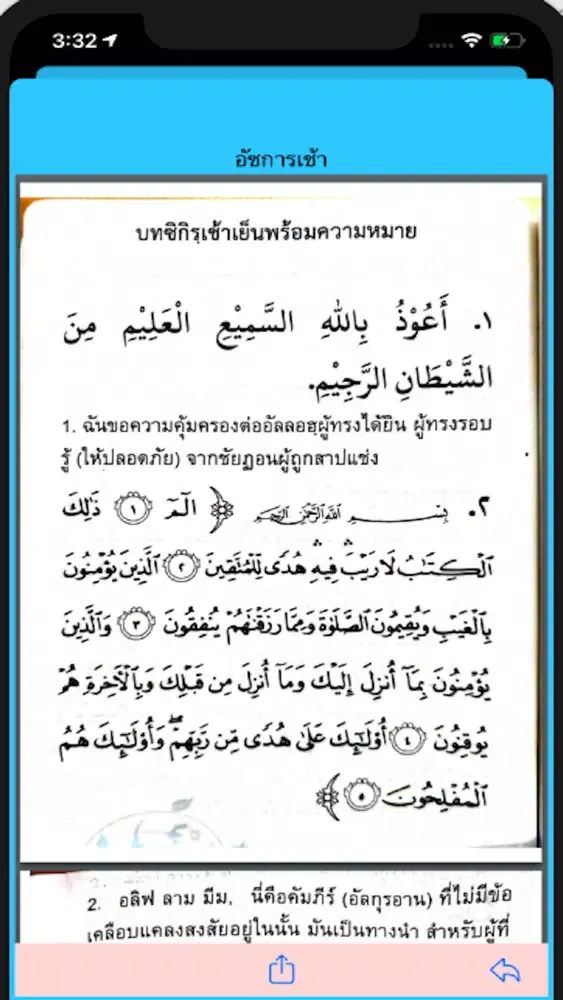 3:32
อัซการเช้า
บทซิกิรฺเช้าเย็นพร้อมความหมาย
١. أَعُوْذُ بِاللهِ السَّمِيْعِ الْعَلِيْمِ مِنَ
الشَّيْطَانِ الرَّجِيْمِ.
1. ฉันขอความคุ้มครองต่ออัลลอฮฺผู้ทรงได้ยิน ผู้ทรงรอบ
รู้ (ให้ปลอดภัย) จากชัยฏอนผู้ถูกสาปแช่ง
٢. بِسْمِ اللَّهِ الرَّحْمَٰنِ الرَّحِيمِ ﴿ الٓمٓ ١ ذَٰلِكَ
الْكِتَابُ لَا رَيْبَ ۛ فِيهِ ۛ هُدًى لِّلْمُتَّقِينَ ٢ الَّذِينَ يُؤْمِنُونَ
بِالْغَيْبِ وَيُقِيمُونَ الصَّلَوٰةَ وَمِمَّا رَزَقْنَٰهُمْ يُنفِقُونَ ٣ وَالَّذِينَ
يُؤْمِنُونَ بِمَآ أُنزِلَ إِلَيْكَ وَمَآ أُنزِلَ مِن قَبْلِكَ وَبِالْآخِرَةِ هُمْ
يُوقِنُونَ ٤ أُوْلَٰٓئِكَ عَلَىٰ هُدًى مِّن رَّبِّهِمْ ۖ وَأُوْلَٰٓئِكَ هُمُ
الْمُفْلِحُونَ ٥ ﴾
2. อลิฟ ลาม มีม, นี่คือคัมภีร์ (อัลกุรอาน) ที่ไม่มีข้อ
เคลือบแคลงสงสัยอยู่ในนั้น มันเป็นทางนำ สำหรับผู้ที่